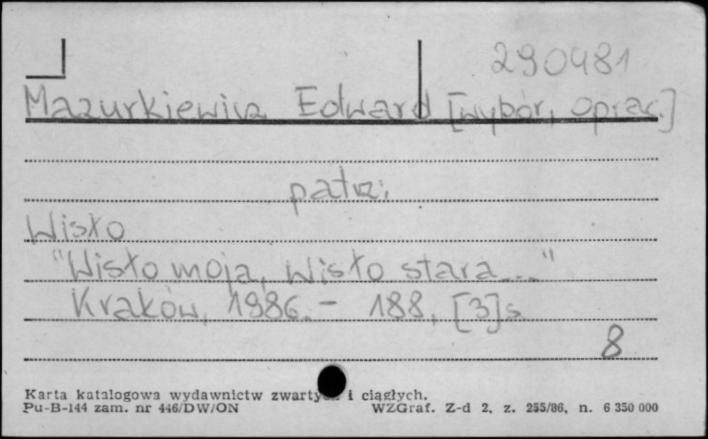 290481
Mazurkiewicz Edward [wybór, oprac.]
patrz:
Wisło
"Wisło moja, Wisło stara..."
Kraków, 1986. - 188, [3]s.
8
Karta katalogowa wydawnictw zwartych i ciągłych.
Pu-B-144 zam. nr 446/DW/ON WZGraf. Z-d 2, z. 255/86, n. 6 350 000